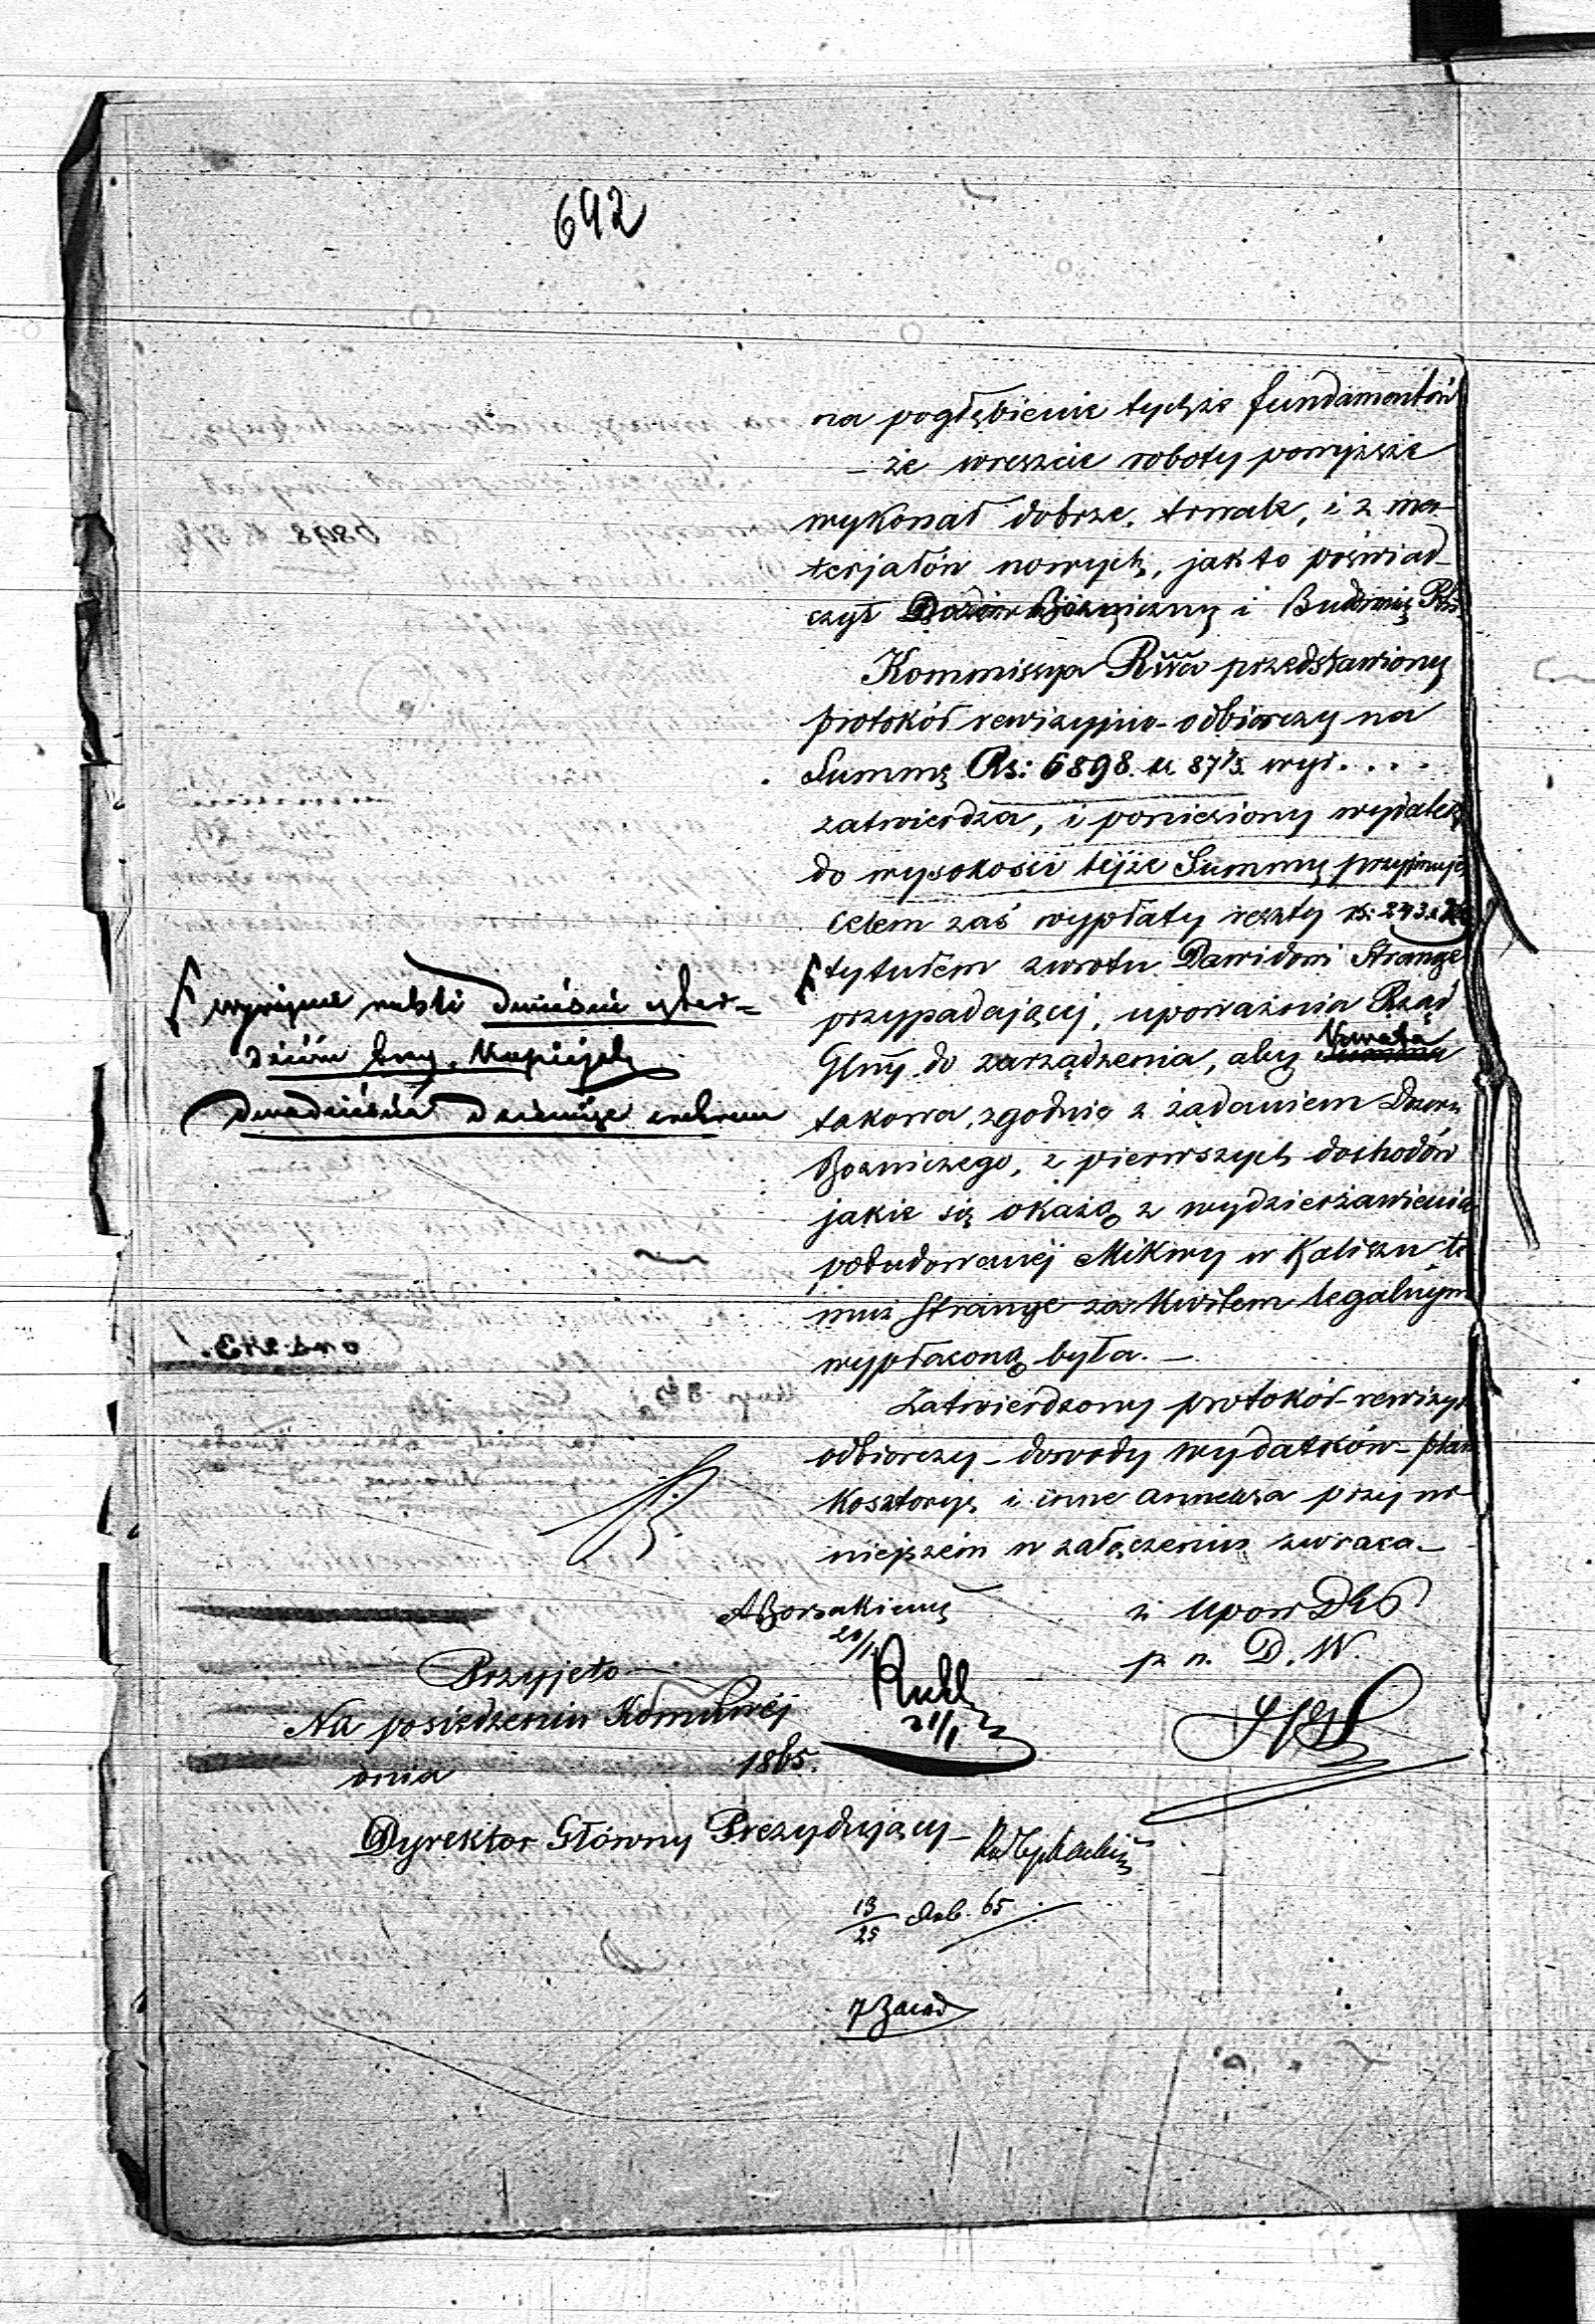 692
na pogłębienie tychże fundamentów
– że wreszcie roboty powyższe
wykonał dobrze, trwale, i z ma-
terjałów nowych, jak to poświad-
czył Dozór Bóżniczny i Budowniczy
Kommissya Rwa przedstawiony
protokół rewizyjno-odbiorczy na
Summę Rs: 6898 k. 87½ wyr. . . .
zatwierdza, i poniesiony wydatek
do wysokości tejże Summy przyjmuje
Celem zaś wypłaty reszty rs: 243 k 29
tytułem zwrotu Dawidowi Strange
wyraźnie rubli dwieście czter-
dzieści trzy, kopiejek
dwadzieścia dziewięć srebrem
przypadającej, upoważnia Rząd
Glny do zarządzenia, aby Kwota
takowa, zgodnie z żądaniem Dozoru
Bozniczego, z pierwszych dochodów
jakie się okażą z wydzierżawienia
pobudowanej Mikwy w Kaliszu te
muż Strange za kwitem legalnym
wypłaconą była. –
Zatwierdzony protokół rewizyj
odbiorczy – dowody wydatków – plan
Kosztorys i inne annexa przy ni
niejszem w załączeniu zwraca –
z upow DGP
p n. D. W.
21/1
Przyjęto
Na posiedzeniu Kommwej
dnia 1865.
Dyrektor Główny Prezydujący –
13/25 65